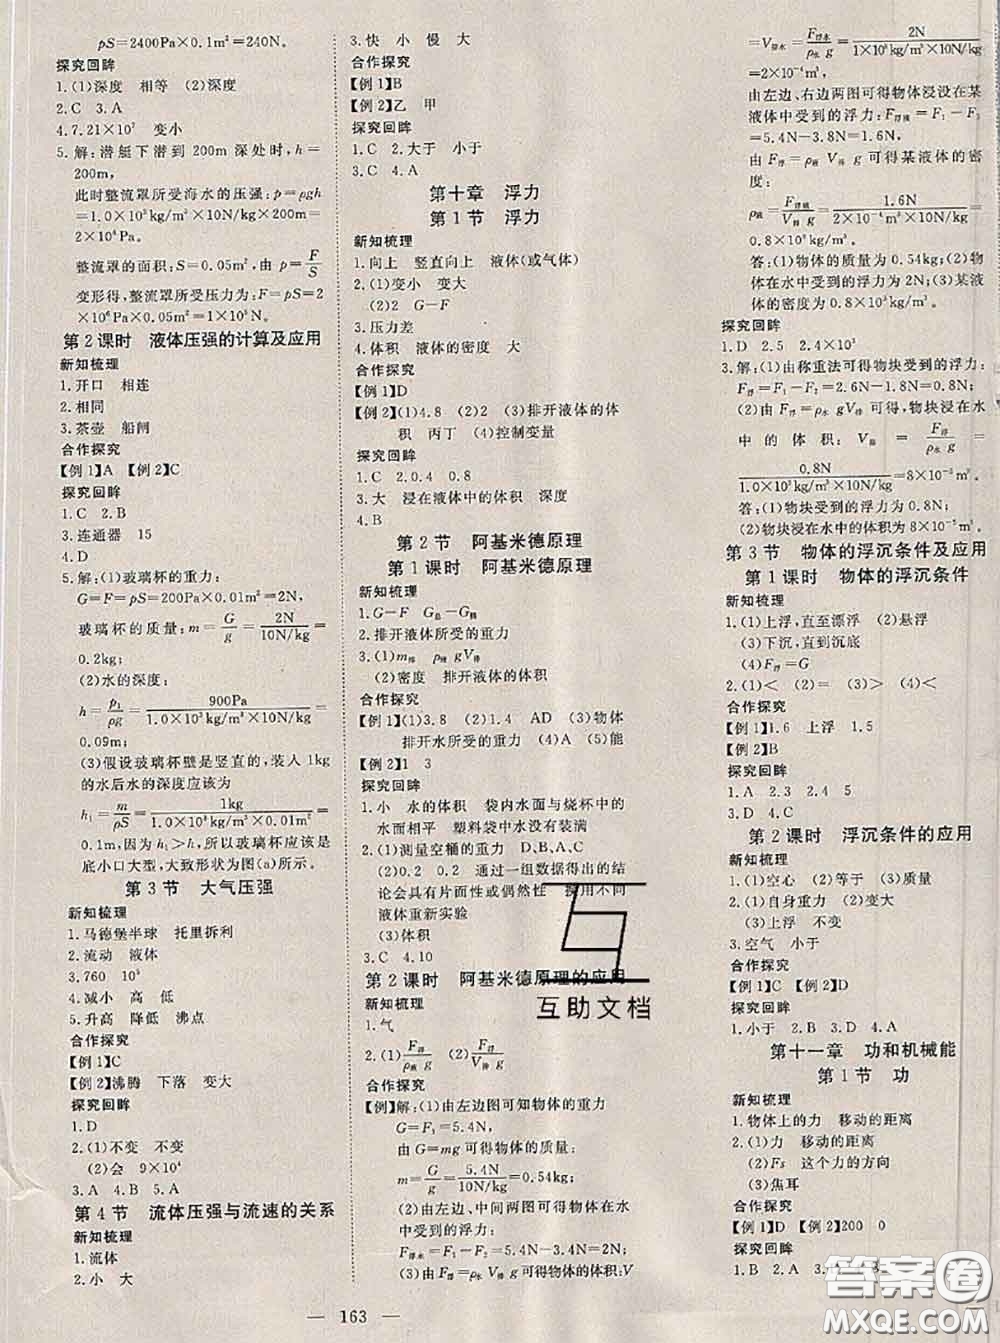 pS=2400Pa×0.1m²=240N。
探究回眸
1.(1)深度 相等 (2)深度
2.C 3.A
4.7.21×10⁷ 变小
5.解:潜艇下潜到200m深处时,h=
200m,
此时整流罩所受海水的压强:p=ρgh
=1.0×10³kg/m³×10N/kg×200m=
2×10⁶Pa。
整流罩的面积:S=0.05m²,由p=F/S
变形得,整流罩所受压力为:F=pS=2
×10⁶Pa×0.05m²=1×10⁵N。
第2课时 液体压强的计算及应用
新知梳理
1.开口 相连
2.相同
3.茶壶 船闸
合作探究
【例1】A 【例2】C
探究回眸
1.C 2.B
3.连通器 15
4.D
5.解:(1)玻璃杯的重力:
G=F=pS=200Pa×0.01m²=2N,
玻璃杯的质量:m=G/g=2N/10N/kg=
0.2kg;
(2)水的深度:
h=p₁/ρg=900Pa/1.0×10³kg/m³×10N/kg=
0.09m;
(3)假设玻璃杯壁是竖直的,装入1kg
的水后水的深度应该为
h₁=m/ρS=1kg/1.0×10³kg/m³×0.01m²=
0.1m,因为h₁>h,所以玻璃杯应是
底小口大型,大致形状为图(a)所示。
第3节 大气压强
新知梳理
1.马德堡半球 托里拆利
2.流动 液体
3.760 10⁵
4.减小 高 低
5.升高 降低 沸点
合作探究
【例1】C
【例2】沸腾 下落 变大
探究回眸
1.D
2.(1)不变 不变
(2)会 9×10⁴
3.A 4.B 5.A
第4节 流体压强与流速的关系
新知梳理
1.流体
2.小 大
3.快 小 慢 大
合作探究
【例1】B
【例2】乙 甲
探究回眸
1.C 2.大于 小于
3.C 4.A
第十章 浮力
第1节 浮力
新知梳理
1.向上 竖直向上 液体(或气体)
2.(1)变小 变大
(2)2 G-F
3.压力差
4.体积 液体的密度 大
合作探究
【例1】D
【例2】(1)4.8 (2)2 (3)排开液体的体
积 丙丁 (4)控制变量
探究回眸
1.C 2.0.4 0.8
3.大 浸在液体中的体积 深度
4.B
第2节 阿基米德原理
第1课时 阿基米德原理
新知梳理
1.G-F G总-G桶
2.排开液体所受的重力
3.(1)m排 ρ液gV排
(2)密度 排开液体的体积
合作探究
【例1】(1)3.8 (2)1.4 AD (3)物体
排开水所受的重力 (4)A (5)能
【例2】1 3
探究回眸
1.小 水的体积 袋内水面与烧杯中的
水面相平 塑料袋中水没有装满
2.(1)测量空桶的重力 D、B、A、C
(2)0.2 0.2 通过一组数据得出的结
论会具有片面性或偶然性 换用不同
液体重新实验
(3)体积
3.C 4.10
第2课时 阿基米德原理的应用
新知梳理
1.气
2.(1)F浮/ρ液g (2)F浮/V排g
合作探究
【例】解:(1)由左边图可知物体的重力
G=F₁=5.4N,
由G=mg可得物体的质量:
m=G/g=5.4N/10N/kg=0.54kg;
(2)由左边、中间两图可得物体在水
中受到的浮力:
F浮水=F₁-F₂=5.4N-3.4N=2N;
(3)由F浮=ρ水V排g可得物体的体积:V
=V排水=F浮水/ρ水g=2N/1×10³kg/m³×10N/kg
=2×10⁻⁴m³,
由左边、右边两图可得物体浸没在某
液体中受到的浮力:F浮液=F₁-F₃
=5.4N-3.8N=1.6N,
由F浮=ρ液V排g可得某液体的密
度:
ρ液=F浮液/V排g=1.6N/2×10⁻⁴m³×10N/kg=
0.8×10³kg/m³。
答:(1)物体的质量为0.54kg;(2)物
体在水中受到的浮力为2N;(3)某液
体的密度为0.8×10³kg/m³。
探究回眸
1.D 2.5 2.4×10³
3.解:(1)由称重法可得物块的浮力:
F浮=F₁-F₂=2.6N-1.8N=0.8N;
(2)由F浮=ρ水gV排可得,物块浸在水
中的体积:V排=F浮/ρ水g=
0.8N/1.0×10³kg/m³×10N/kg=8×10⁻⁵m³。
答:(1)物块受到的浮力为0.8N;
(2)物块浸在水中的体积为8×10⁻⁵m³。
第3节 物体的浮沉条件及应用
第1课时 物体的浮沉条件
新知梳理
1.(1)上浮,直至漂浮 (2)悬浮
(3)下沉,直到沉底
(4)F浮=G
2.(1)< (2)= (3)> (4)<
合作探究
【例1】1.6 上浮 1.5
【例2】B
探究回眸
1.A 2.3 2.4 5
3.D 4.C
第2课时 浮沉条件的应用
新知梳理
1.(1)空心 (2)等于 (3)质量
2.(1)自身重力 (2)变大
(3)上浮 不变
3.空气 小于
合作探究
【例1】C 【例2】C
探究回眸
1.小于 2.B 3.D 4.A
第十一章 功和机械能
第1节 功
新知梳理
1.物体上的力 移动的距离
2.(1)力 移动的距离
(2)Fs 这个力的方向
(3)焦耳
合作探究
【例1】D 【例2】200 0
探究回眸
1.B 2.A
互助文档
答案圈
MXQE.COM
— 163 —